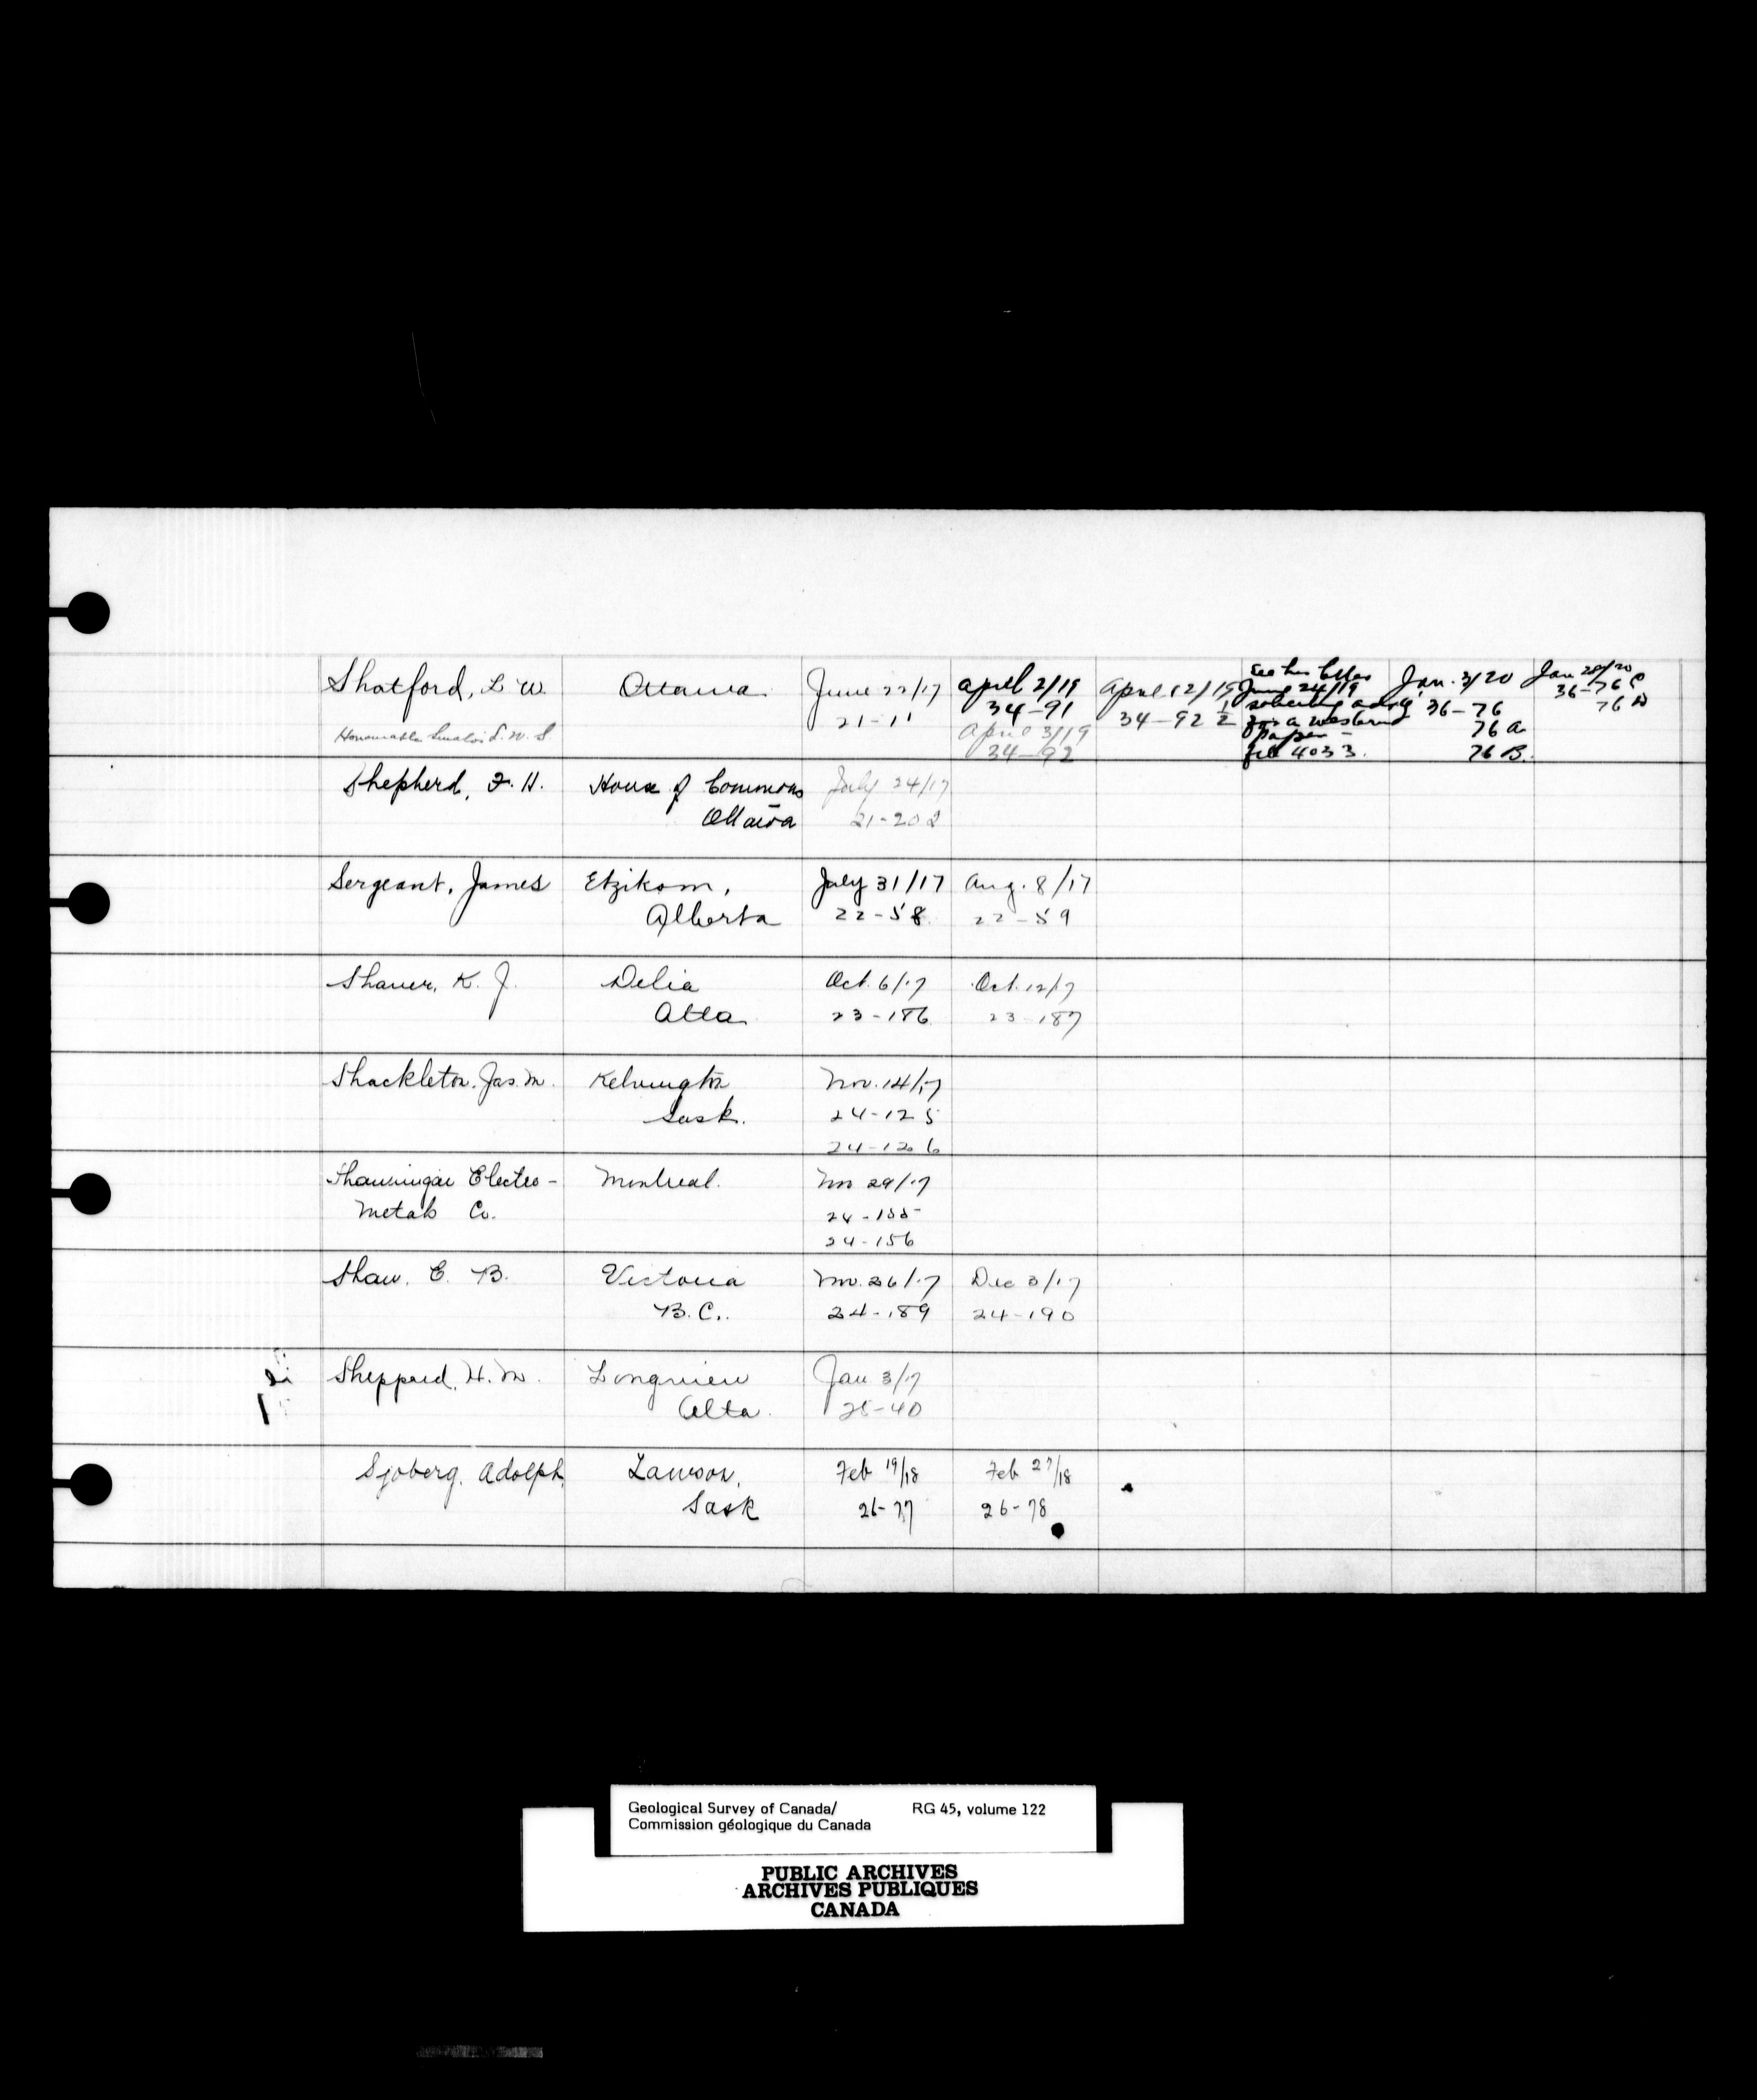 Shatford, L. W.
Ottawa
June 22/17
21-11
April 2/19
34-91
April 3/19
34-92
April 12/19
34-92 1/2
See his letter
June 24/19
soliciting advtg
for a western
paper -
file 4033.
Jan. 3/20
36-76
76 A
76 B.
Jan 28/20
36-76 C
76 D
Honourable Senator L. W. S
Shepherd, F. H.
House of Commons
Ottawa
July 24/17
21-202
Sergeant, James
Etzikom,
Alberta
July 31/17
22-58
Aug. 8/17
22-59
Shaver, K. J.
Delia
Alta
Oct. 6/17
23-186
Oct. 12/17
23-187
Shackleton, Jas. M.
Kelvington
Sask.
Nov. 14/17
24-125
24-126
Shawinigan Electro-
Metals Co.
Montreal.
Nov 29/17
24-155
24-156
Shaw, E. B.
Victoria
B.C.
Nov. 26/17
24-189
Dec 3/17
24-190
Sheppard, H. M.
Longview
Alta.
Jan 3/17
25-40
Sjoberg, Adolph
Lawson,
Sask
Feb 19/18
26-77
Feb 27/18
26-78
Geological Survey of Canada/ RG 45, volume 122
Commission géologique du Canada
PUBLIC ARCHIVES
ARCHIVES PUBLIQUES
CANADA